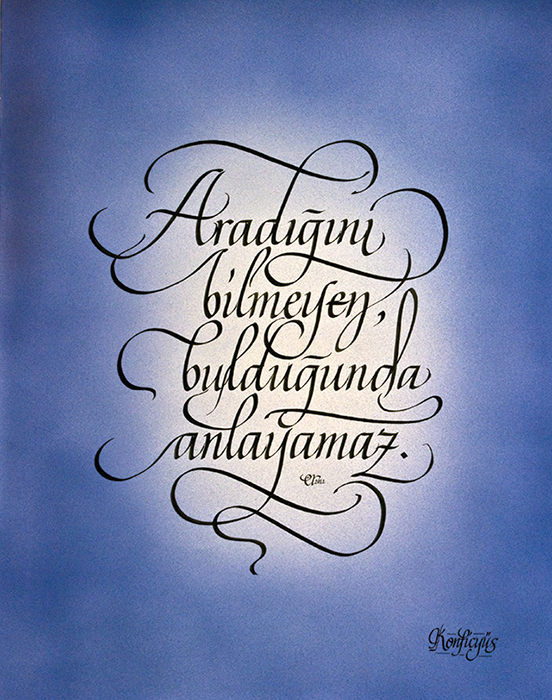 Aradığını
bilmeyen,
bulduğunda
anlayamaz.
Konfiçyüs